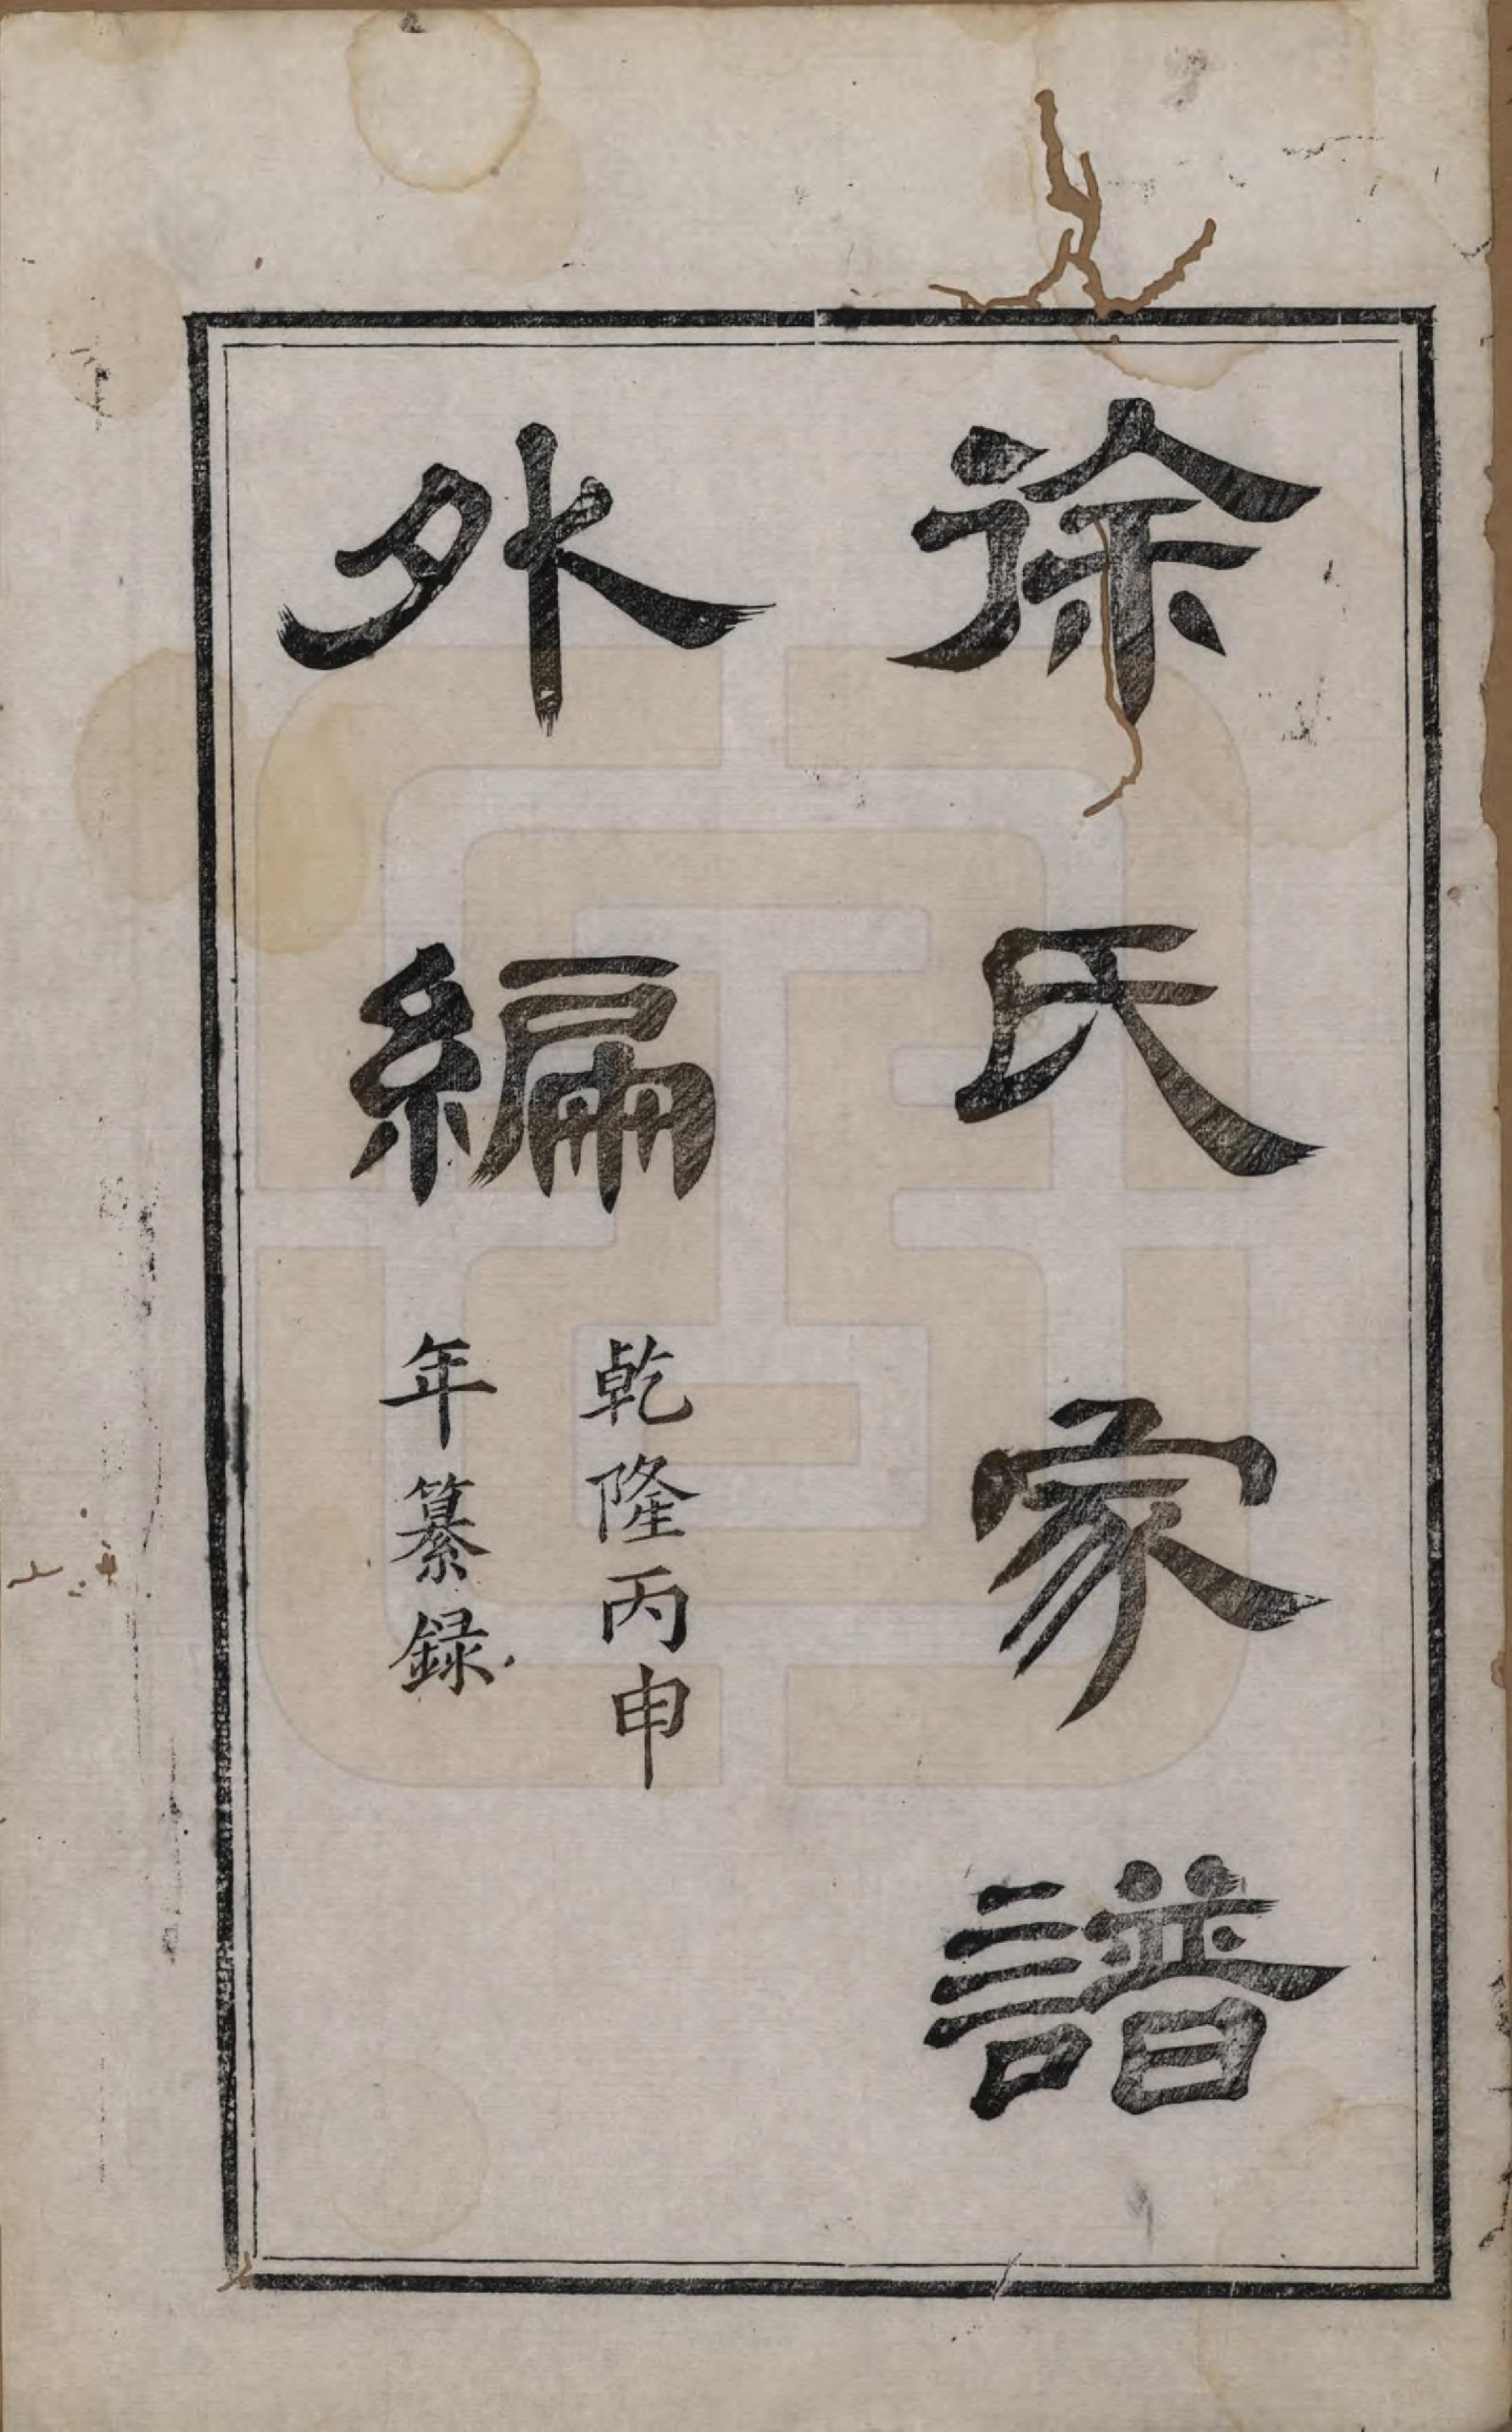 徐氏家譜
外編
乾隆丙申
年纂録